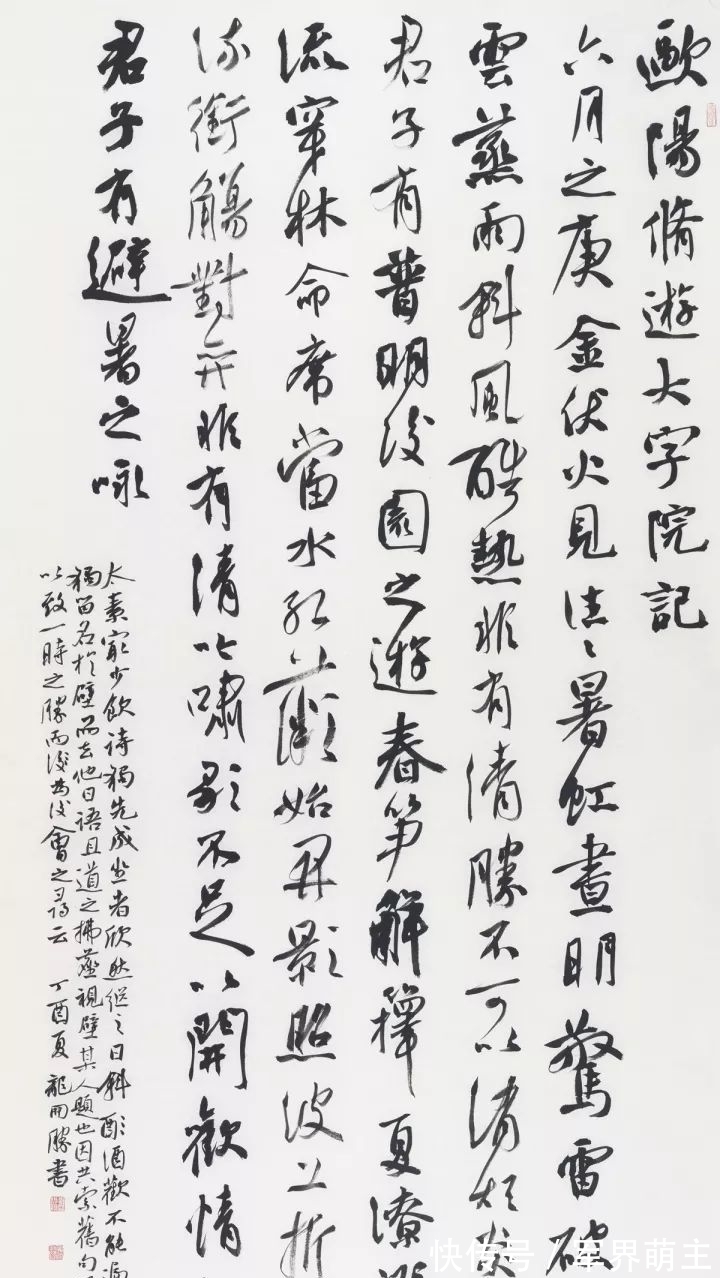 歐陽脩遊大字院記
六月之庚金伏火見往々暑虹晝明驚雷破
雲蒸雨斜風酷熱非有清勝不可以消煩炎
君子有普明後園之遊春笋解籜夏潦
流穿林命席當水紅薇始開影照波上折
流銜觴對弈非有清以嘯歌不足以開歡情
君子有避暑之咏
太素最少飲詩獨先成坐者欣然繼之日斜酣酒歡不能遍
獨留名於壁而去他日語且道之拂塵視壁某人題也因共索舊句
以致一時之勝而後為後會之尋云 丁酉夏 龍開勝書
快传号 / 军界萌主